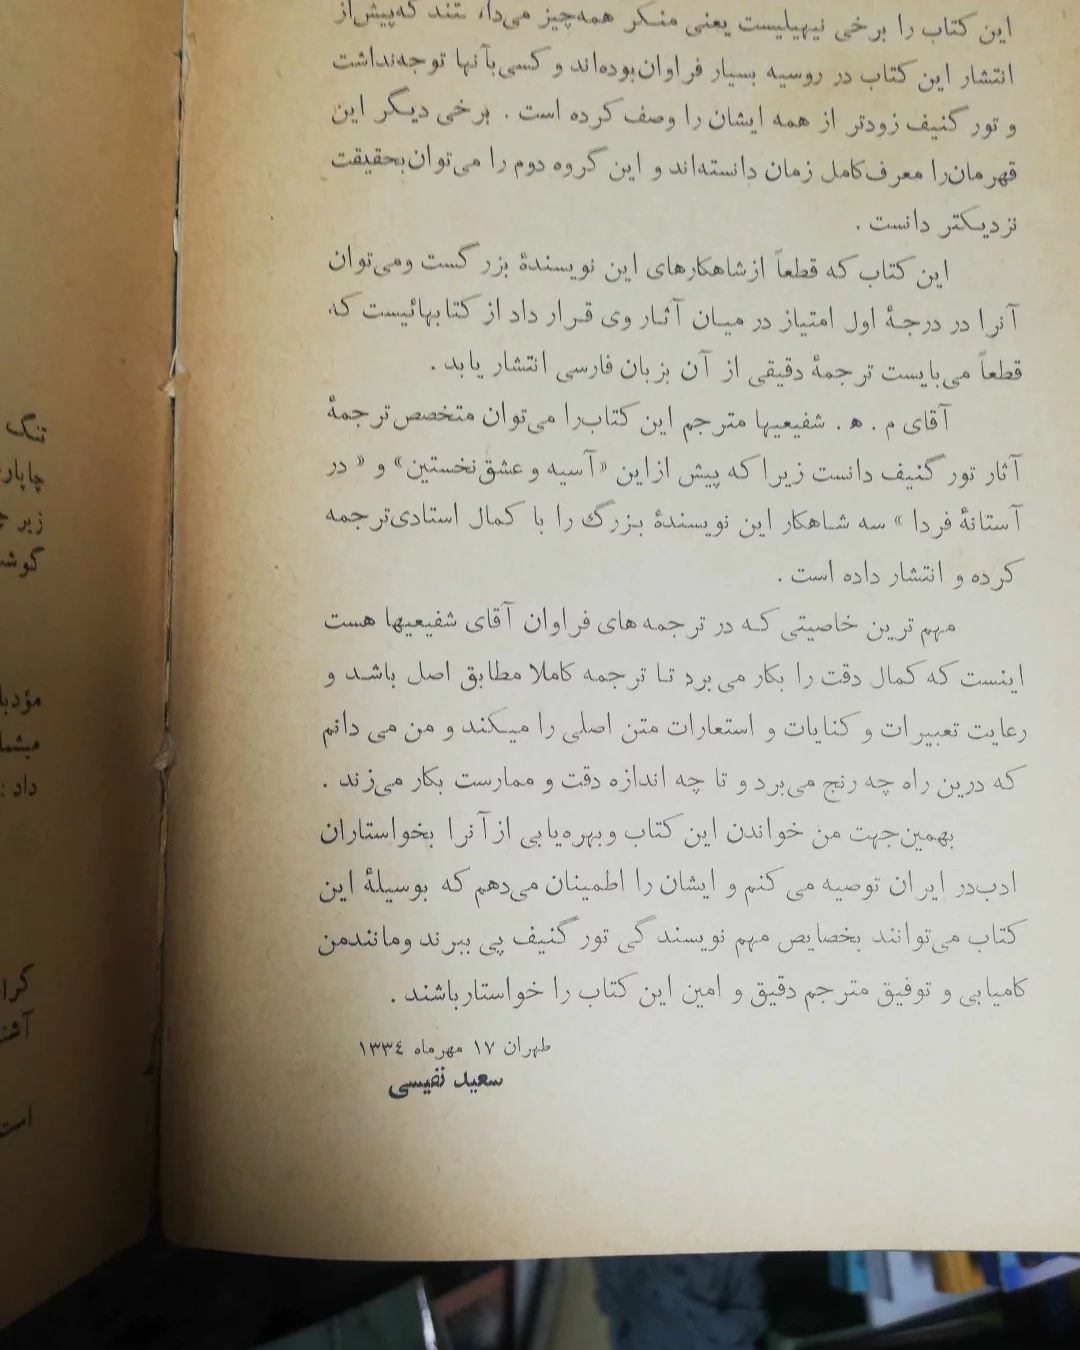 این کتاب را برخی نیهیلیست یعنی منکر همه‌چیز می‌دا، ـتند که‌پیش‌از
انتشار این کتاب در روسیه بسیار فراوان‌بوده‌اند و کسی‌بآنها توجه‌نداشت
و تور گنیف زودتر از همه ایشان را وصف کرده است . برخی دیگر این
قهرمان‌را معرف‌کامل زمان دانسته‌اند و این گروه دوم را می‌توان‌بحقیقت
نزدیکتر دانست .
این کتاب که قطعاً ازشاهکارهای این نویسندهٔ بزر گست ومی‌توان
آنرا در درجهٔ اول امتیاز در میان آثار وی قرار داد از کتابهائیست که
قطعاً می‌بایست ترجمهٔ دقیقی از آن بزبان فارسی انتشار یابد .
آقای م . ه . شفیعیها مترجم این کتاب‌را می‌توان متخصص‌ترجمهٔ
آثار تور گنیف دانست زیرا که پیش ازاین «آسیه و عشق‌نخستین» و « در
آستانهٔ فردا » سه شاهکار این نویسندهٔ بزرگ را با کمال استادی‌ترجمه
کرده و انتشار داده است .
مهم ترین خاصیتی که در ترجمه‌های فراوان آقای شفیعیها هست
اینست که کمال دقت را بکار می‌برد تا ترجمه کاملا مطابق اصل باشد و
رعایت تعبیرات و کنایات و استعارات متن اصلی را میکند و من می دانم
که درین راه چه رنج می‌برد و تا چه اندازه دقت و ممارست بکار می‌زند .
بهمین‌جهت من خواندن این کتاب وبهره‌یابی ازآنرا بخواستاران
ادب‌در ایران توصیه می کنم و ایشان را اطمینان می‌دهم که بوسیلهٔ این
کتاب می‌توانند بخصایص مهم نویسند گی تور گنیف پی ببرند ومانندمن
کامیابی و توفیق مترجم دقیق و امین این کتاب را خواستارباشند .
طهران ۱۷ مهرماه ۱۳۳٤
سعید نفیسی
تنگ
زیر
داد :